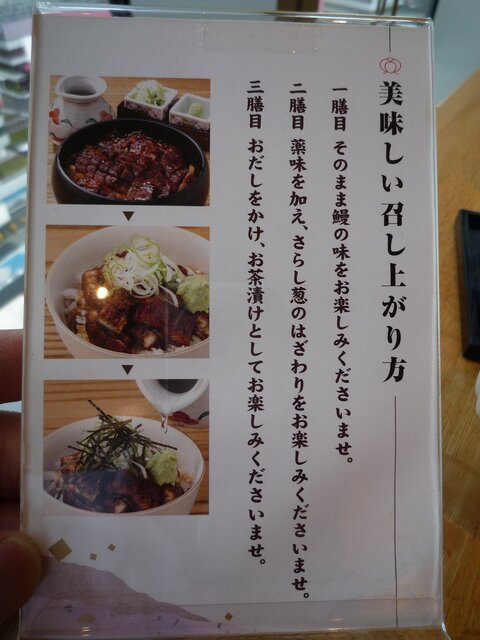 美味しい召し上がり方
一膳目 そのまま鰻の味をお楽しみくださいませ。
二膳目 薬味を加え、さらし葱のはざわりをお楽しみくださいませ。
三膳目 おだしをかけ、お茶漬けとしてお楽しみくださいませ。